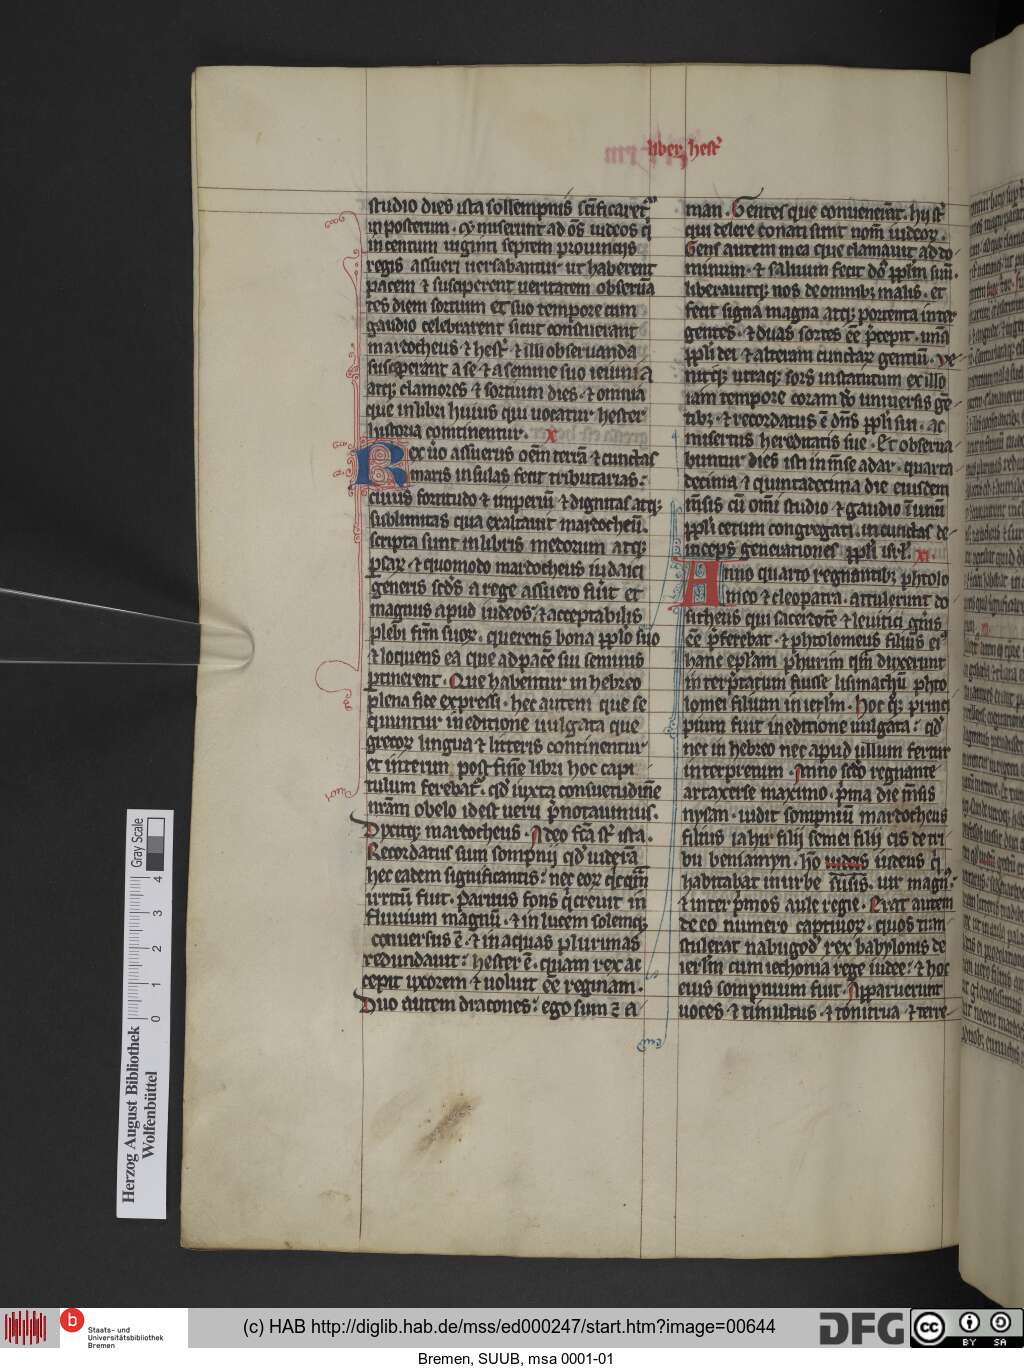 liber hest᷑
studio dies ista sollempnis sc̄ificaret᷑
in posterum . ⁊ miserunt ad oēs iudeos q̄
in centum uiginti septem prouinciis
regis assueri uersabantur ut haberent
pacem ⁊ susciperent ueritatem obseruā
tes diem sortium et suo tempore cum
gaudio celebrarent sicut constituerant
mardocheus ⁊ hest᷑ . ⁊ illi obseruanda
susceperant a se ⁊ a semine suo ieiunia
atq; clamores ⁊ sortium dies . ⁊ omnia
que in libri huius qui uocatur hester
historia continentur . x
Rex u̓o assuerus oēm terrā ⁊ cunctas
maris insulas fecit tributarias :
cuius fortitudo ⁊ imperiū ⁊ dignitas atq;
sublimitas qua exaltauit mardocheū .
scripta sunt in libris medorum atq;
persaꝝ ⁊ quomodo mardocheus iudaici
generis sc̄ds a rege assuero fu̓it et
magnus apud iudeos . ⁊ acceptabilis
plebi frm̄ suoꝝ . querens bona pplo suo
⁊ loquens ea que ad pacē sui seminis
ptinerent . Que habentur in hebreo
plena fide expressi . hec autem que se
quuntur in editione uulgata que
grecoꝝ lingua ⁊ litteris continentur
et interim post finē libri hoc capi
tulum ferebat᷑ . qd̓ iuxta consuetudinē
nr̄am obelo id est ueru p̄notauimus .
Dixitq; mardocheus . A deo fc̄a st̄ ista .
Recordatus sum sompnii qd̓ uiderā
hec eadem significantis : nec eoꝝ qicqm̄
irritū fuit . Paruus fons q̓ creuit in
fluuium magnū . ⁊ in lucem solemq;
conuersus ē . ⁊ in aquas plurimas
redundauit : hester ē . quam rex ac
cepit uxorem ⁊ uoluit eē reginam .
Duo autem dracones : ego sum ⁊ a
man . Gentes que conuenerāt . hii st̄
qui delere conati sunt nom̄ iudeoꝝ .
Gens autem mea que clamauit ad do
minum . ⁊ saluum fecit dn̄s pplm̄ suū .
liberauitq; nos de omnibꝫ malis . et
fecit signa magna atq; portenta inter
gentes . ⁊ duas sortes eē p̄cepit . unā
ppli dei ⁊ alteram cunctaꝝ gentiū . Ve
nitq; utraq; sors in statutum ex illo
iam tempore coram do̓ uniuersis gē
tibꝫ . ⁊ recordatus ē dn̄s ppli sui . ac
misertus hereditatis sue . Et obserua
buntur dies isti in m̄se adar . quarta
decima ⁊ quintadecima die eiusdem
m̄sis cū om̄i studio ⁊ gaudio ī unū
ppli cetum congregati . in cunctas de
inceps generationes ppli isrl̓ . xi .
Anno quarto regnantibꝫ phtolo
meo ⁊ cleopatra . attulerunt do
sitheus qui sacerdotē ⁊ leuitici gn̄is
eē p̄ferebat . ⁊ phtolomeus filius ei᷒
hanc ep̄lam phurim qm̄ dixerunt
interp̄tatum fuisse lisimachū phto
lomei filium in ierl̓m . Hoc q̄ꝫ princi
pium fuit in editione uulgata : qd̓
nec in hebreo nec apud ullum fertur
interpretum . Anno sc̄do regnante
artaxerse maximo . p̄ma die m̄sis
nysan . uidit sompniū mardocheus
filius iahir filij semei filij cis de tri
bu beniamyn . ho̓ iudeus q̓
habitabat in urbe susis . uir magn᷒ :
⁊ inter p̄mos aule regie . Erat autem
de eo numero captiuoꝝ . quos tran
stulerat nabugod̓ rex babylonis de
ierl̓m cum iechonia rege iudee : ⁊ hoc
eius sompnium fuit . Apparuerunt
uoces . ⁊ tumultus . ⁊ tonitrua . ⁊ terre
Herzog August Bibliothek
Wolfenbüttel
Gray Scale
0 1 2 3 4
b
Staats- und
Universitätsbibliothek
Bremen
(c) HAB http://diglib.hab.de/mss/ed000247/start.htm?image=00644
DFG
cc
BY SA
Bremen, SUUB, msa 0001-01